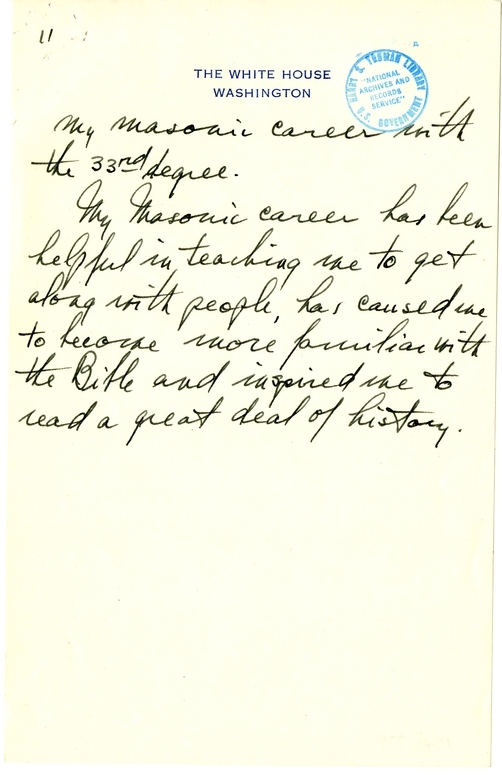 11
THE WHITE HOUSE
WASHINGTON
HARRY S. TRUMAN LIBRARY
"NATIONAL
ARCHIVES AND
RECORDS
SERVICE"
U.S. GOVERNMENT
My Masonic career with
the 33rd degree.
My Masonic career has been
helpful in teaching me to get
along with people, has caused me
to become more familiar with
the Bible and inspired me to
read a great deal of history.